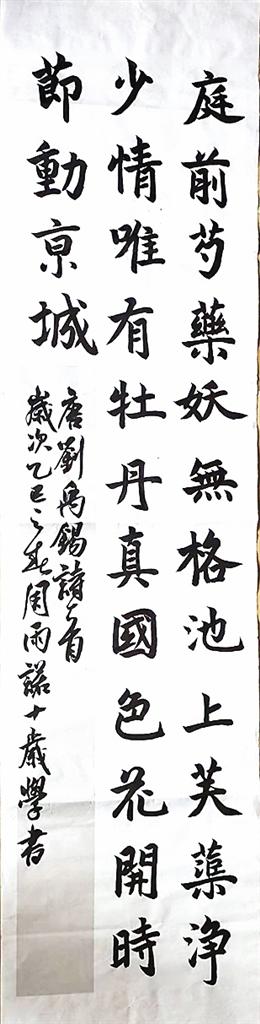 庭前芍藥妖無格池上芙蕖淨
少情唯有牡丹真國色花開時
節動京城
唐劉禹錫詩一首
歲次乙巳之春周雨諾十歲學書